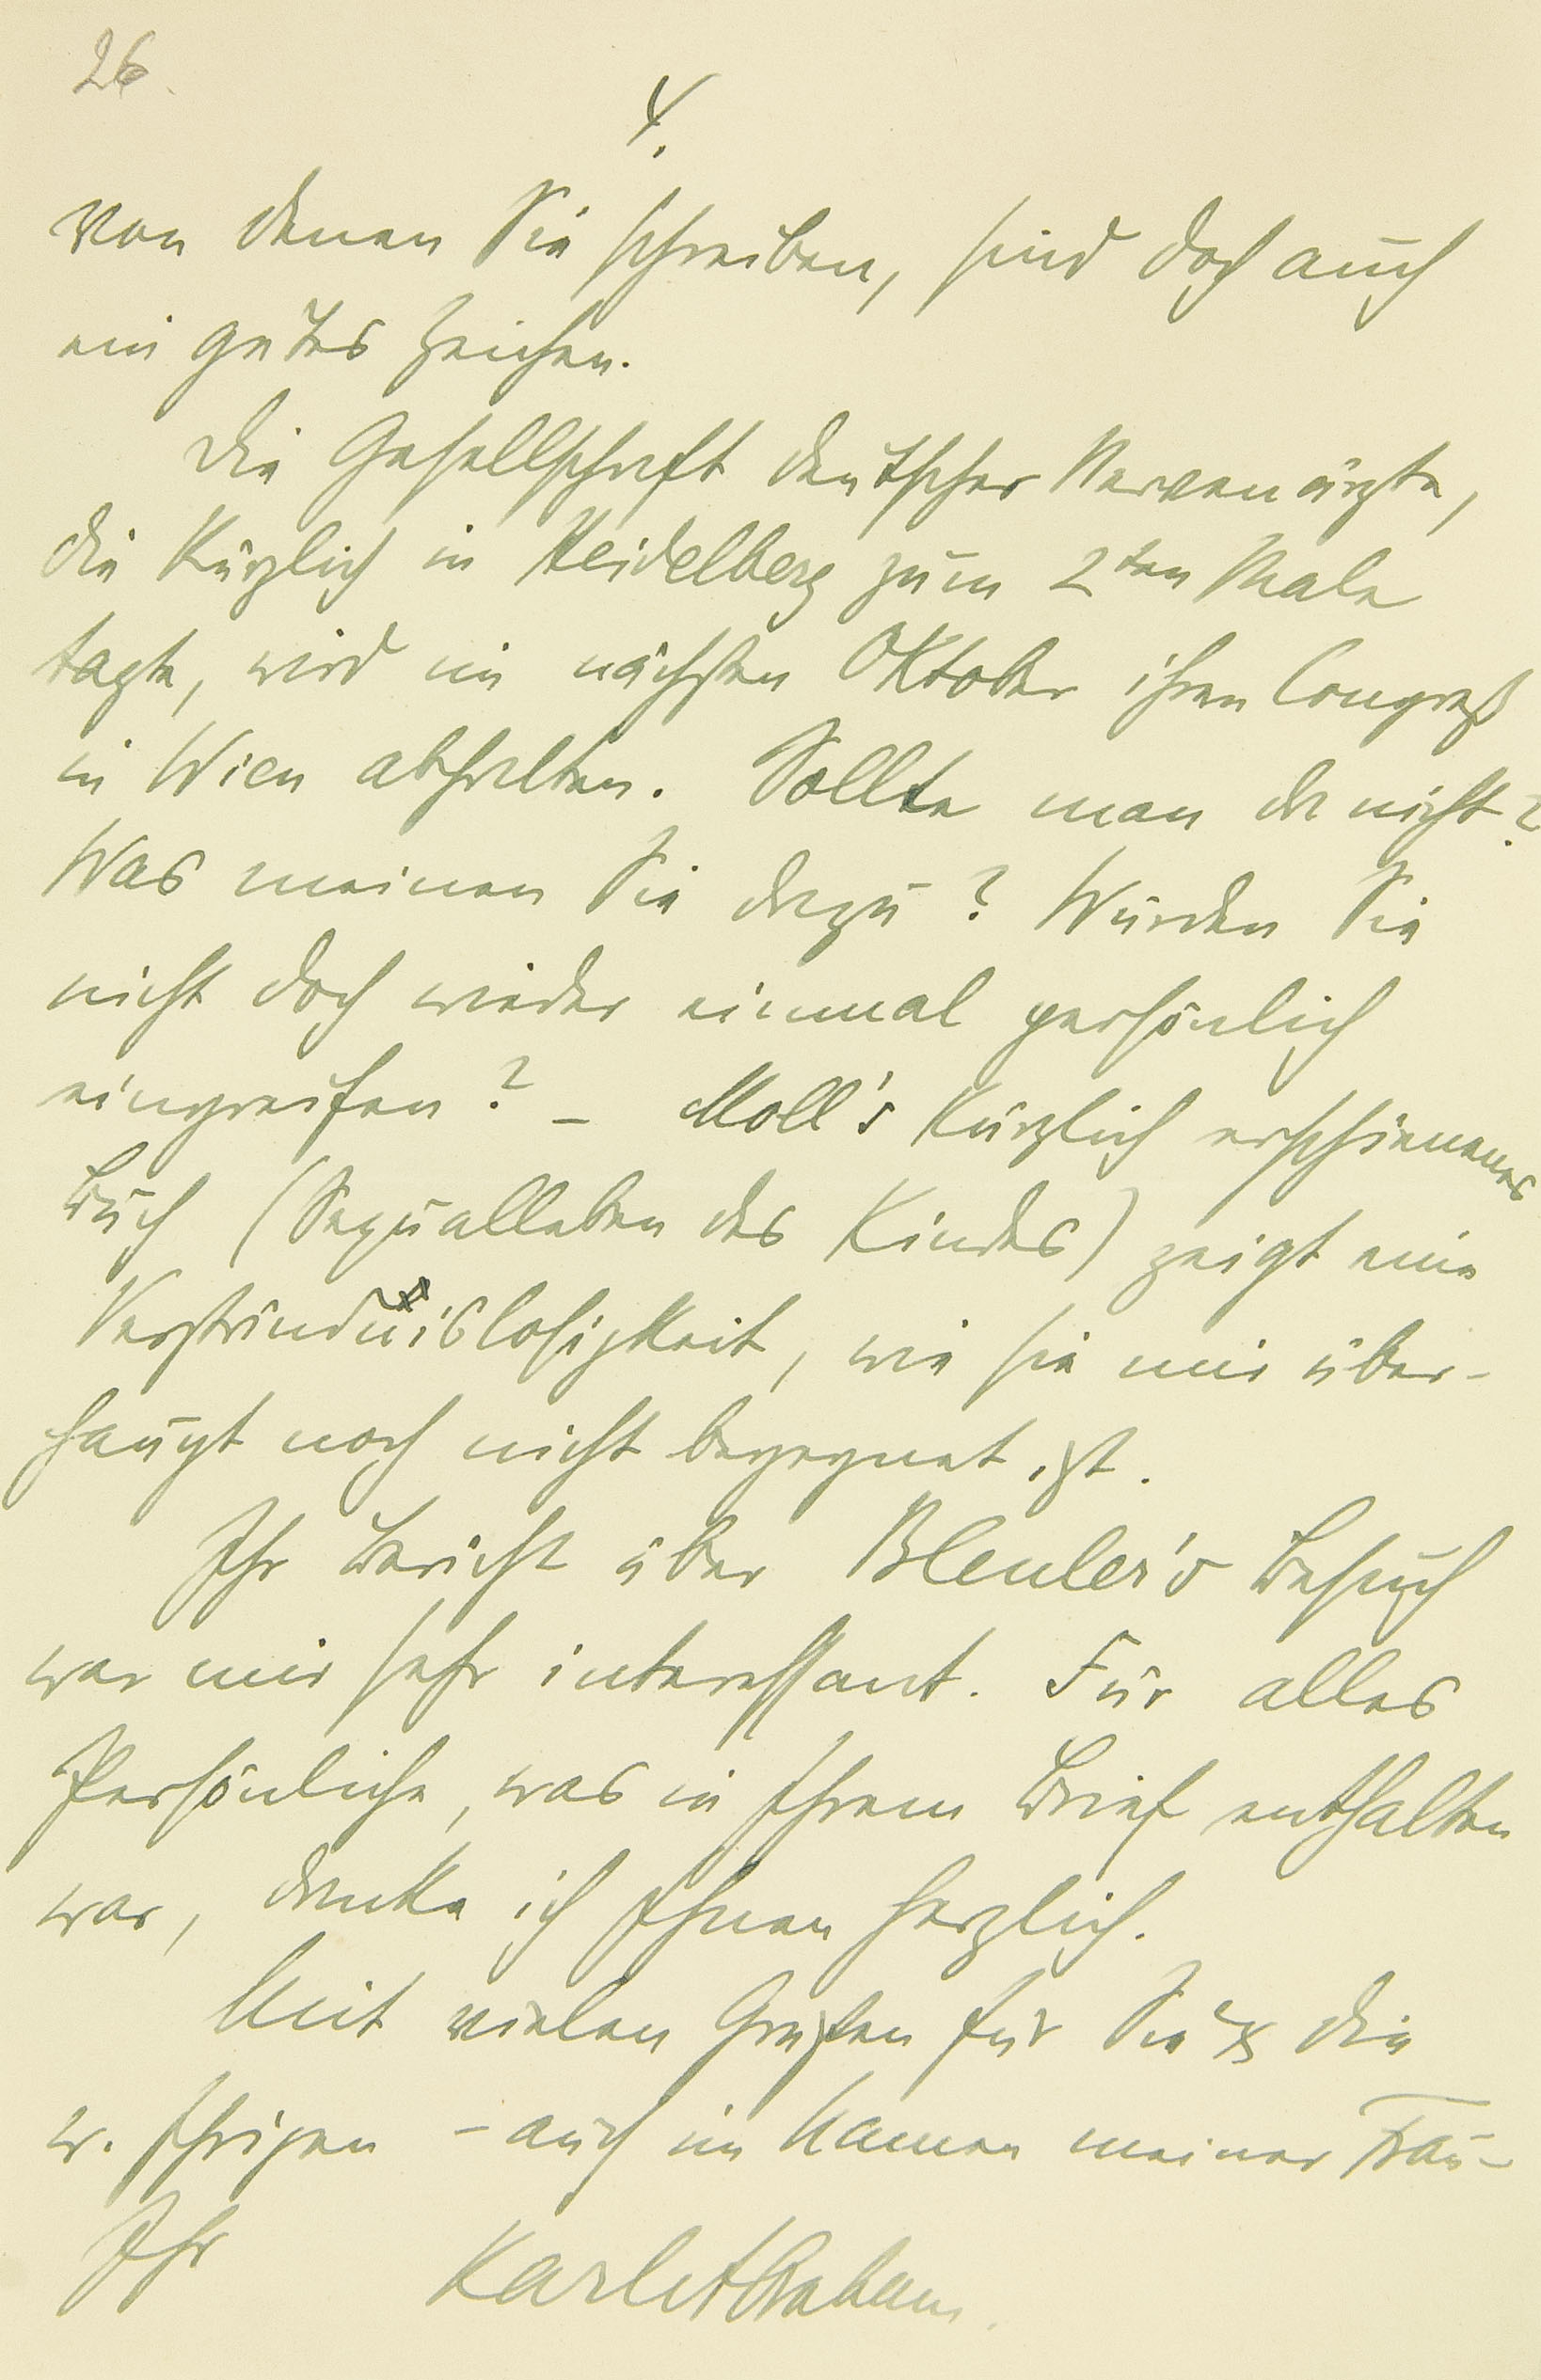 26.
4.
von denen Sie schreiben, sind doch auch
ein gutes Zeichen.
Die Gesellschaft deutscher Nervenärzte,
die kürzlich in Heidelberg zum 2ten Male
tagte, wird im nächsten Oktober ihren Congreß
in Wien abhalten. Sollte man da nicht?
Was meinen Sie dazu? Würden Sie
nicht doch wieder einmal persönlich
eingreifen? – Moll's kürzlich erschienenes
Buch (Sexualleben des Kindes) zeigt eine
Verständnislosigkeit, wie sie mir über-
haupt noch nicht begegnet ist.
Ihr Bericht über Bleuler's Besuch
war mir sehr interessant. Für alles
Persönliche, was in Ihrem Brief enthalten
war, danke ich Ihnen herzlich.
Mit vielen Grüßen für Sie & die
w. Ihrigen – auch im Namen meiner Frau –
Ihr Karl Abraham.